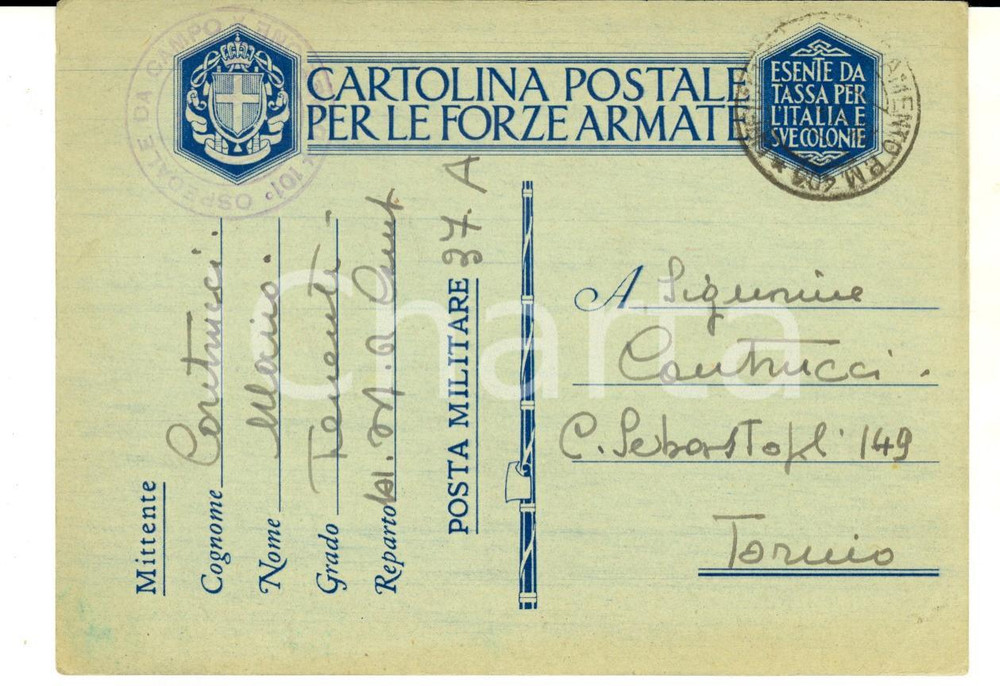 CARTOLINA POSTALE
PER LE FORZE ARMATE
ESENTE DA
TASSA PER
L'ITALIA E
SVE COLONIE
101° OSPEDALE DA CAMPO
P.M. 403
Mittente
Cognome Contrucci
Nome Mario
Grado Tenente
Reparto 101. Osp. da Camp
POSTA MILITARE 37. A
A Signorine
Contrucci.
C. Sebastopoli 149
Torino
Charta